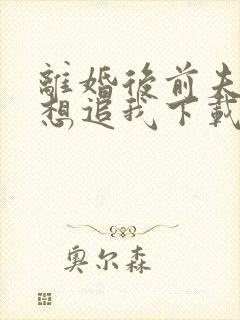 離婚後前夫
想追我下載
奥尔森